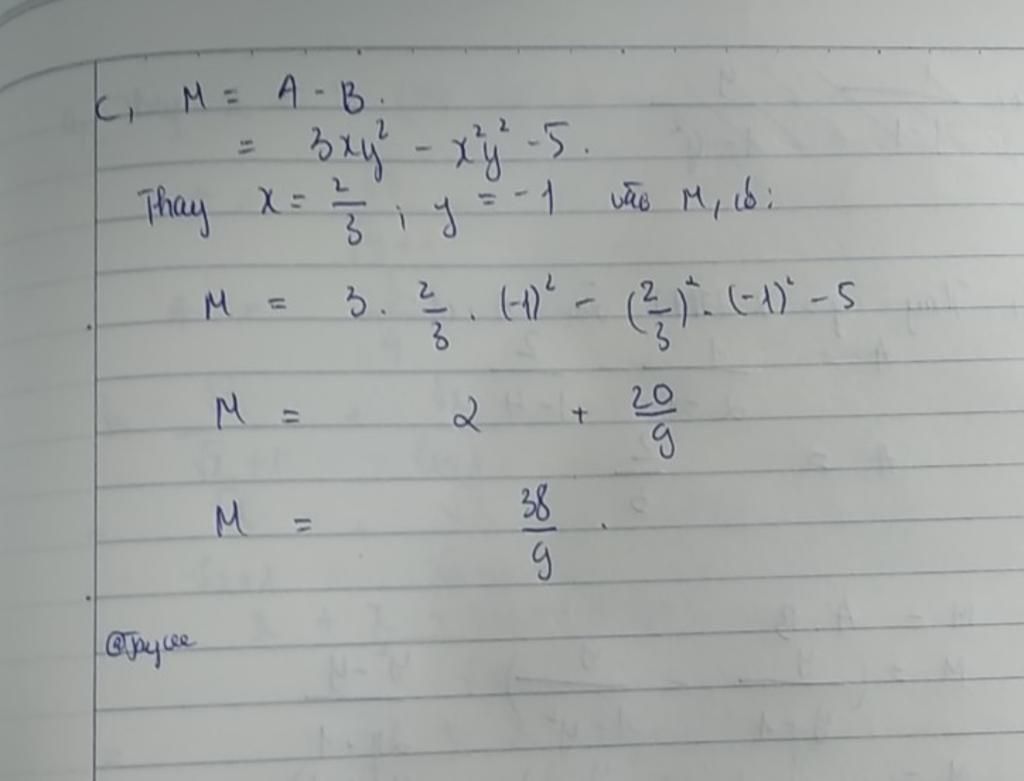 c, M = A - B.
= 3xy² - x²y² - 5.
Thay x = 2/3 ; y = -1 vào M, có:
M = 3 . 2/3 . (-1)² - (2/3)² . (-1)² - 5
M = 2 + 20/9
M = 38/9 .
@Jaycee